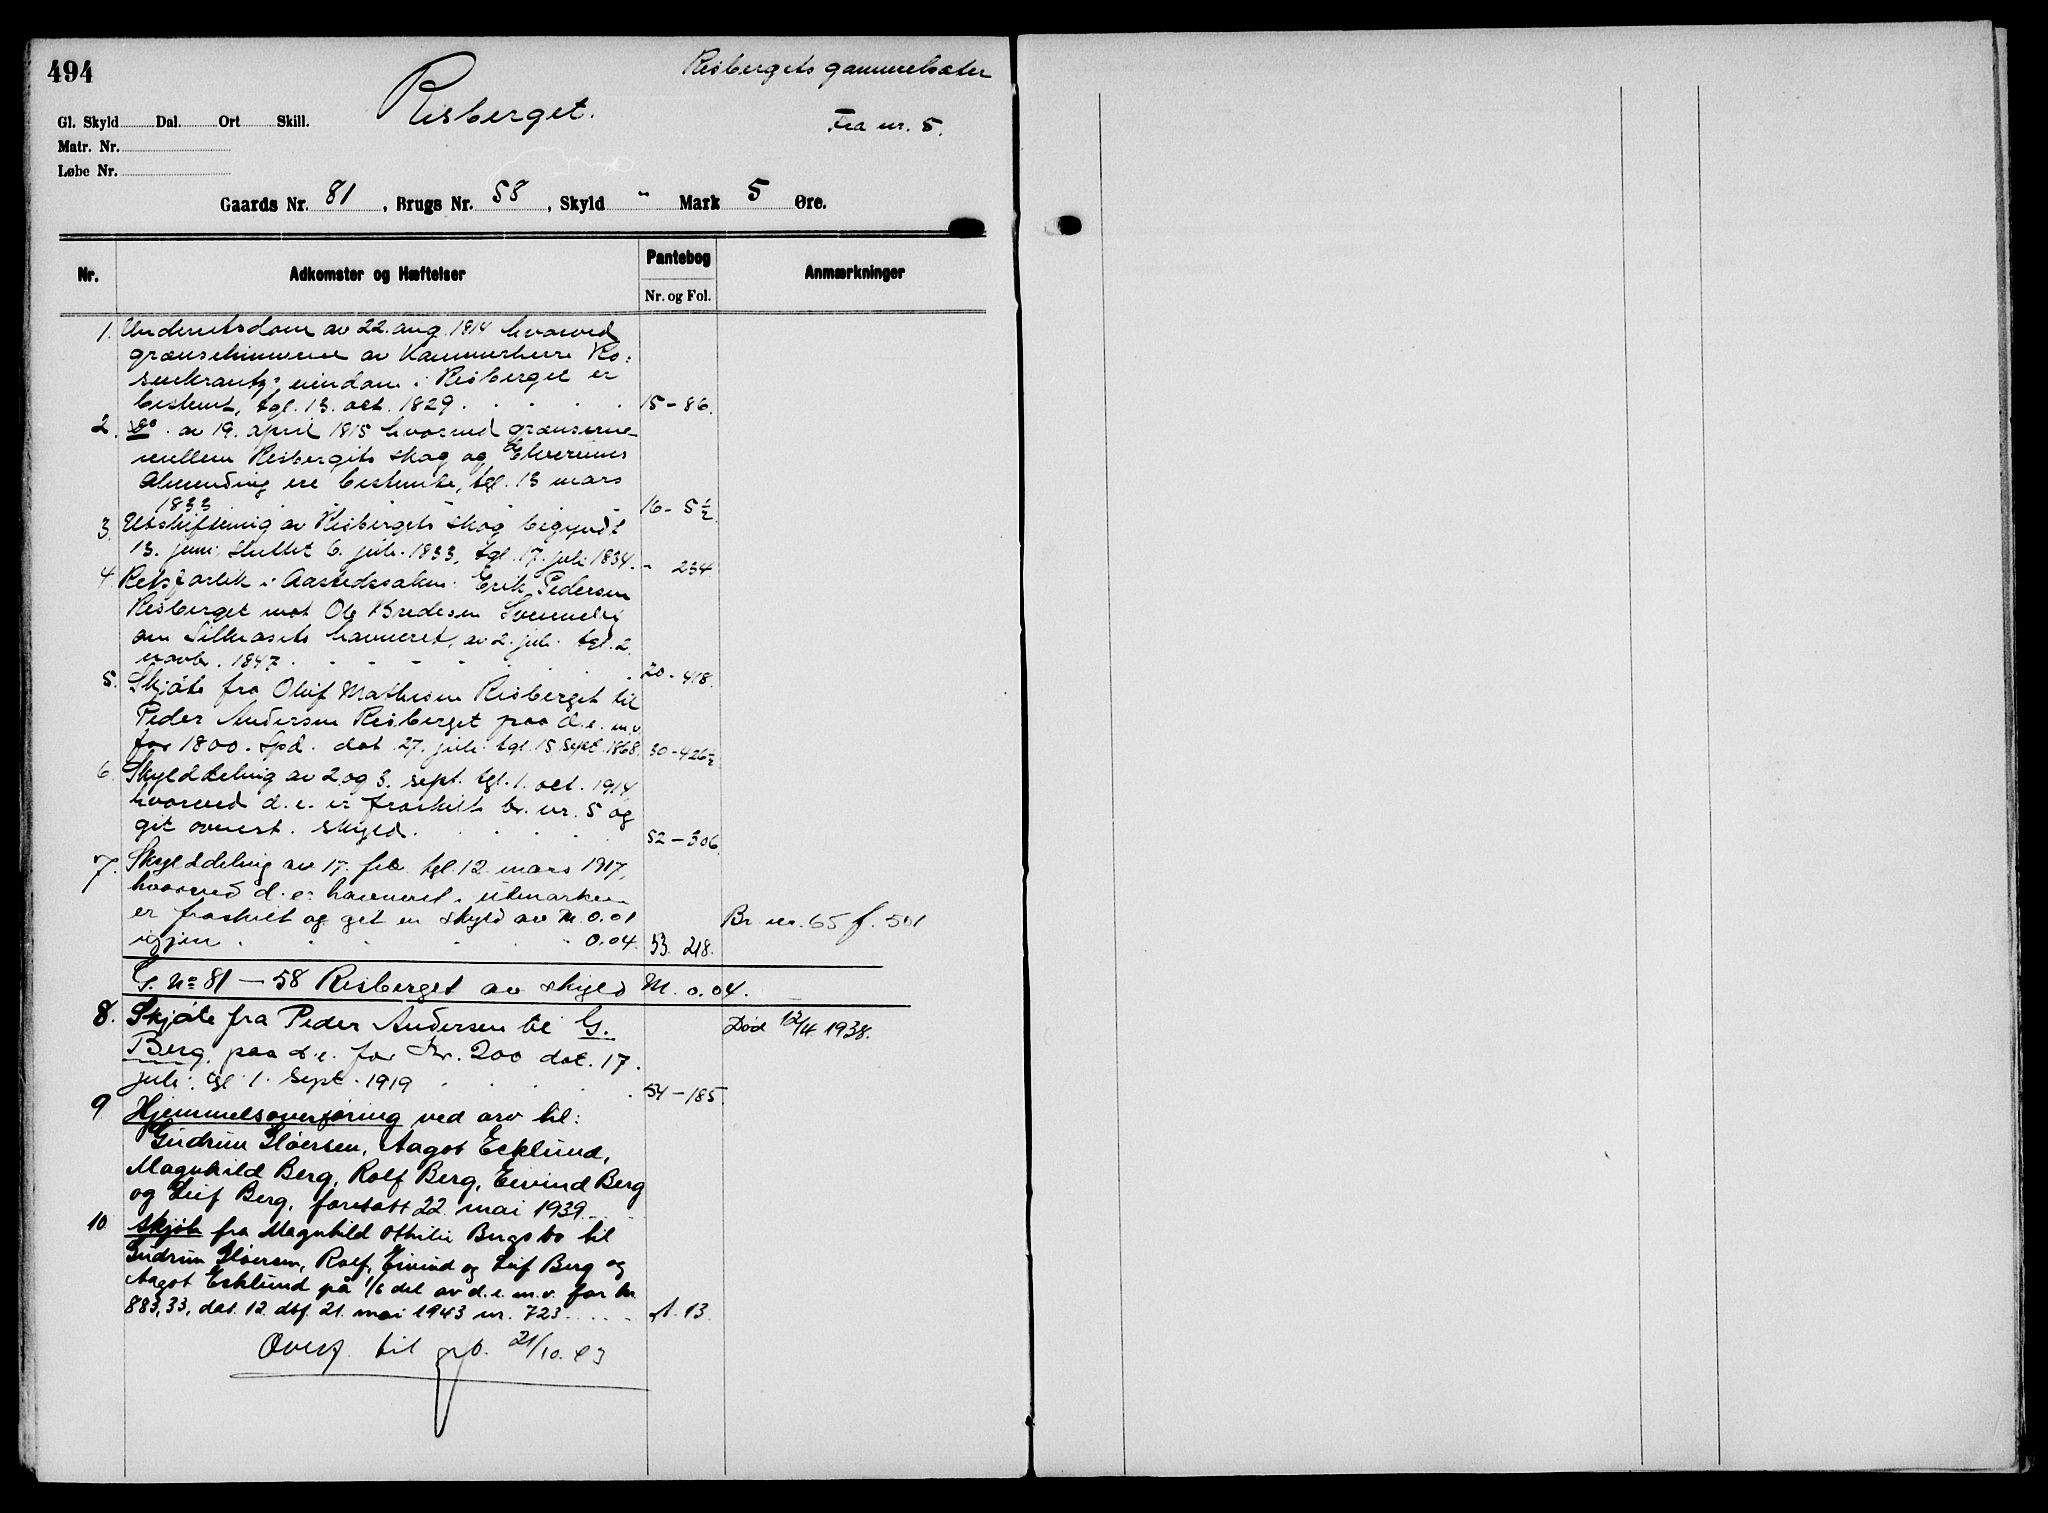 494
Risbergets gammelsæter
Risberget.
Fra nr. 5.
Gl. Skyld Dal. Ort Skill.
Matr. Nr.
Løbe Nr.
Gaards Nr. 81, Brugs Nr. 58, Skyld " Mark 5 Øre.
Nr. Adkomster og Hæftelser Pantebog Anmærkninger
Nr. og Fol.
1. Underretsdom av 22. aug. 1814 hvorved
grænselinnerne av Kammerherre Ro=
senkrantz's eiendom i Risberget er
bestemt, tgl. 13. oct. 1829. 15-86.
2. Do. av 19. april 1815 hvorved grænserne
mellem Risbergets skog og Elverums
Almending ere bestemte, tgl. 13 mars
1833 16-5½
3. Utskiftning av Risbergets skog begyndt
13. juni sluttet 6. juli 1833, tgl. 17. juli 1834. " 234
4. Retsforlik i Aastedssaken: Erik Pedersen
Risberget mot Ole Bredesen
om havneret, av 2. juli tgl. 2.
novbr. 1847. 20-418.
5. Skjøte fra Oluf Mathisen Risberget til
Peder Andersen Risberget paa d.e. m.v.
for 1800. Spd. dat. 27. juli tgl. 15 sept. 1868. 30-426½
6. Skylddeling av 2 og 3. sept. tgl. 1. oct. 1914
hvorved d.e. er fraskilt br. nr. 5 og
git ovenst. skyld. 52-306.
7. Skylddeling av 17. feb. tgl. 12. mars 1917,
hvorved d. e's havneret i utmarken
er fraskilt og get en skyld av M. 0.01 Br. nr. 65 f. 501
igjen 0.04. 53. 218.
G. No 81-58 Risberget av skyld M. 0.04.
8. Skjøte fra Peder Andersen til G. Død 12/4 1938.
Berg. paa d.e. for Kr. 200 dat. 17.
juli. tgl 1. Sept. 1919 54-185.
9 Hjemmelsoverføring ved arv til:
Gudrun Gløersen, Aagot Ecklund,
Magnhild Berg, Rolf Berg, Eivind Berg
og Leif Berg, foretatt 22. mai 1939
10 Skjøte fra Magnhild Othilie Bergsbo til
Gudrun Gløersen, Rolf, Eivind og Leif Berg og
Aagot Ecklund på 1/6 del av d.e. m.v. for kr.
883,33, dat. 12. dbf. 21. mai 1943 nr. 723 A. 13.
Overf. til 21/10.